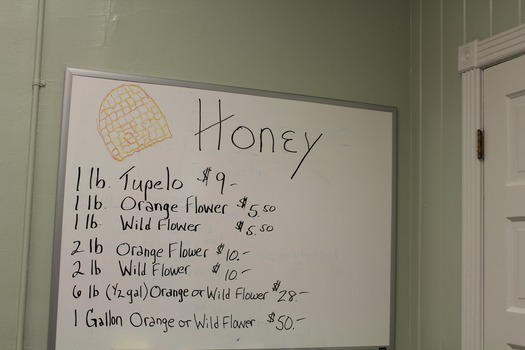 Honey
1 lb. Tupelo $9.-
1 lb. Orange Flower $5.50
1 lb. Wild Flower $5.50
2 lb Orange Flower $10.-
2 lb Wild Flower $10.-
6 lb (1/2 gal) Orange or Wild Flower $28.-
1 Gallon Orange or Wild Flower $50.-